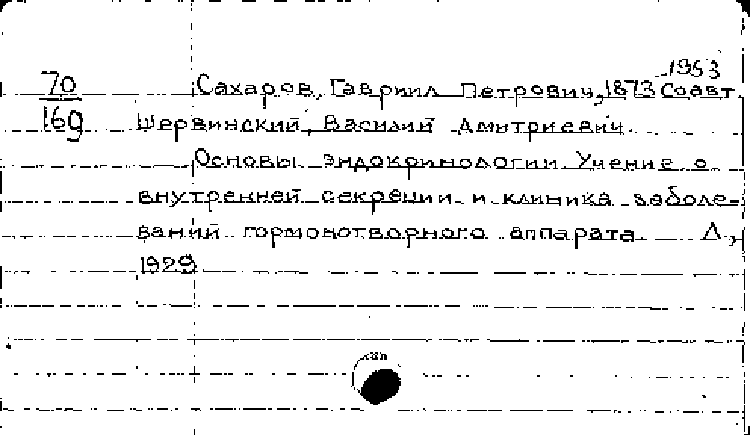 1953
70 Сахаров, Гавриил Петрович, 1873 Соавт.
169 Шервинский, Василий Дмитриевич.
Основы эндокринологии. Учение о
внутренней секреции и клиника заболе-
ваний гормонотворного аппарата. Л.,
1929